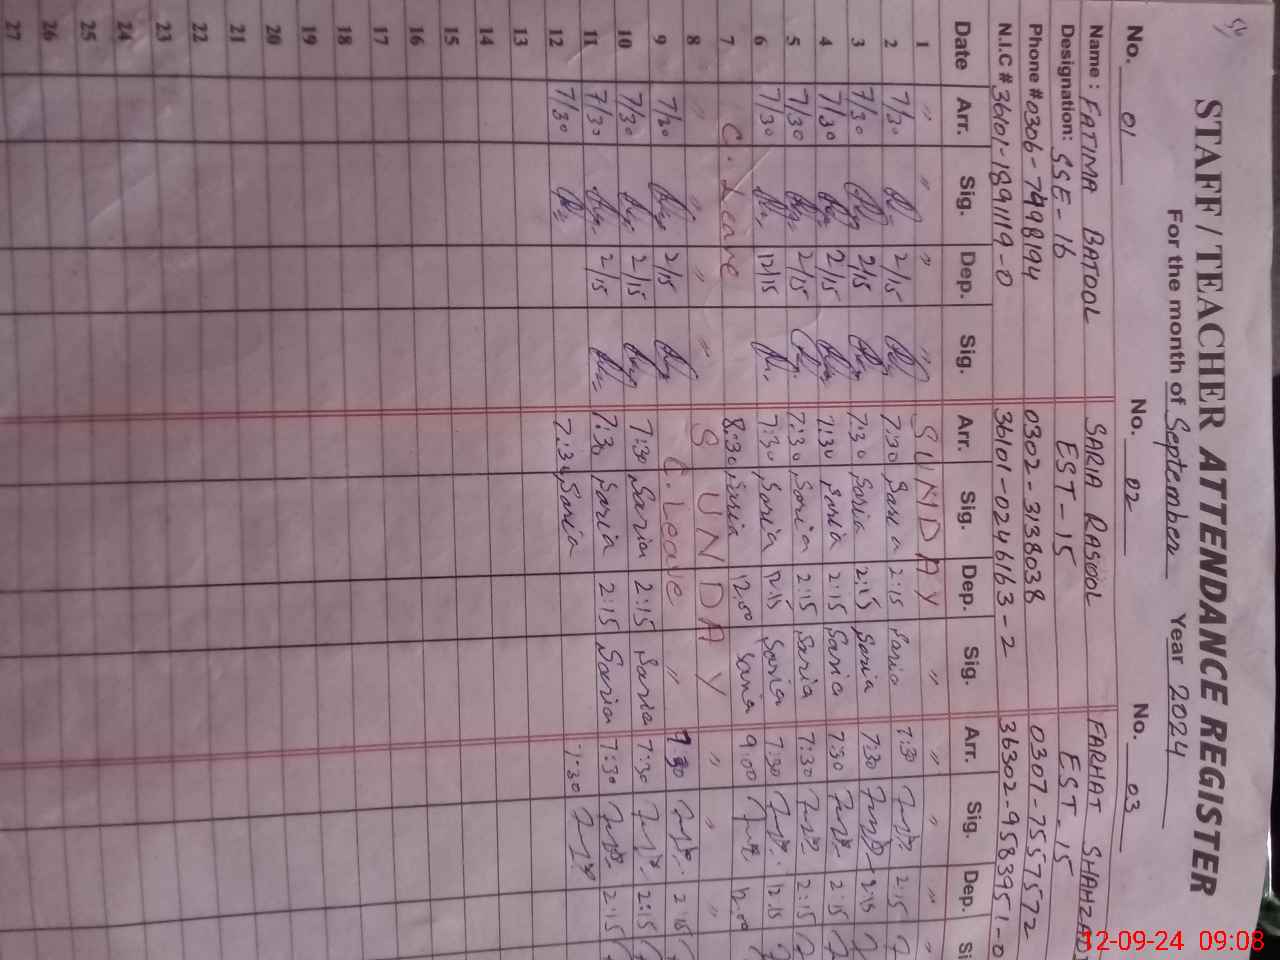 STAFF / TEACHER ATTENDANCE REGISTER
For the month of September Year 2024
No. 01 No. 02 No. 03
Name: FATIMA BATOOL SARIA RASOOL FARHAT SHAHZADI
Designation: SSE-16 EST-15 EST-15
Phone # 0306-7498194 0302-3138038 0307-7557572
N.I.C # 36101-1891119-0 36101-0246163-2 36302-9583951-0
Date Arr. Sig. Dep. Sig. Arr. Sig. Dep. Sig. Arr. Sig. Dep. Si
1 " " " " SUNDAY " " " " "
2 7/30 2/15 7:30 Saria 2:15 Saria 7:30 2:15
3 7/30 2/15 7:30 Saria 2:15 Saria 7:30 2:15
4 7/30 2/15 7:30 Saria 2:15 Saria 7:30 2:15
5 7/30 2/15 7:30 Saria 2:15 Saria 7:30 2:15
6 7/30 12/15 7:30 Saria 12:15 Saria 7:30 12:15
7 C. Leave 8:30 Saria 12:00 Saria 9:00 12:00
8 " " " " SUNDAY " " "
9 7/20 2/15 C. Leave " 7:30 2:15
10 7/30 2/15 7:30 Saria 2:15 Saria 7:30 2:15
11 7/30 2/15 7:30 Saria 2:15 Saria 7:30 2:15
12 7/30 7:30 Saria 7:30
13
14
15
16
17
18
19
20
21
22
23
24
25
26
27
12-09-24 09:08